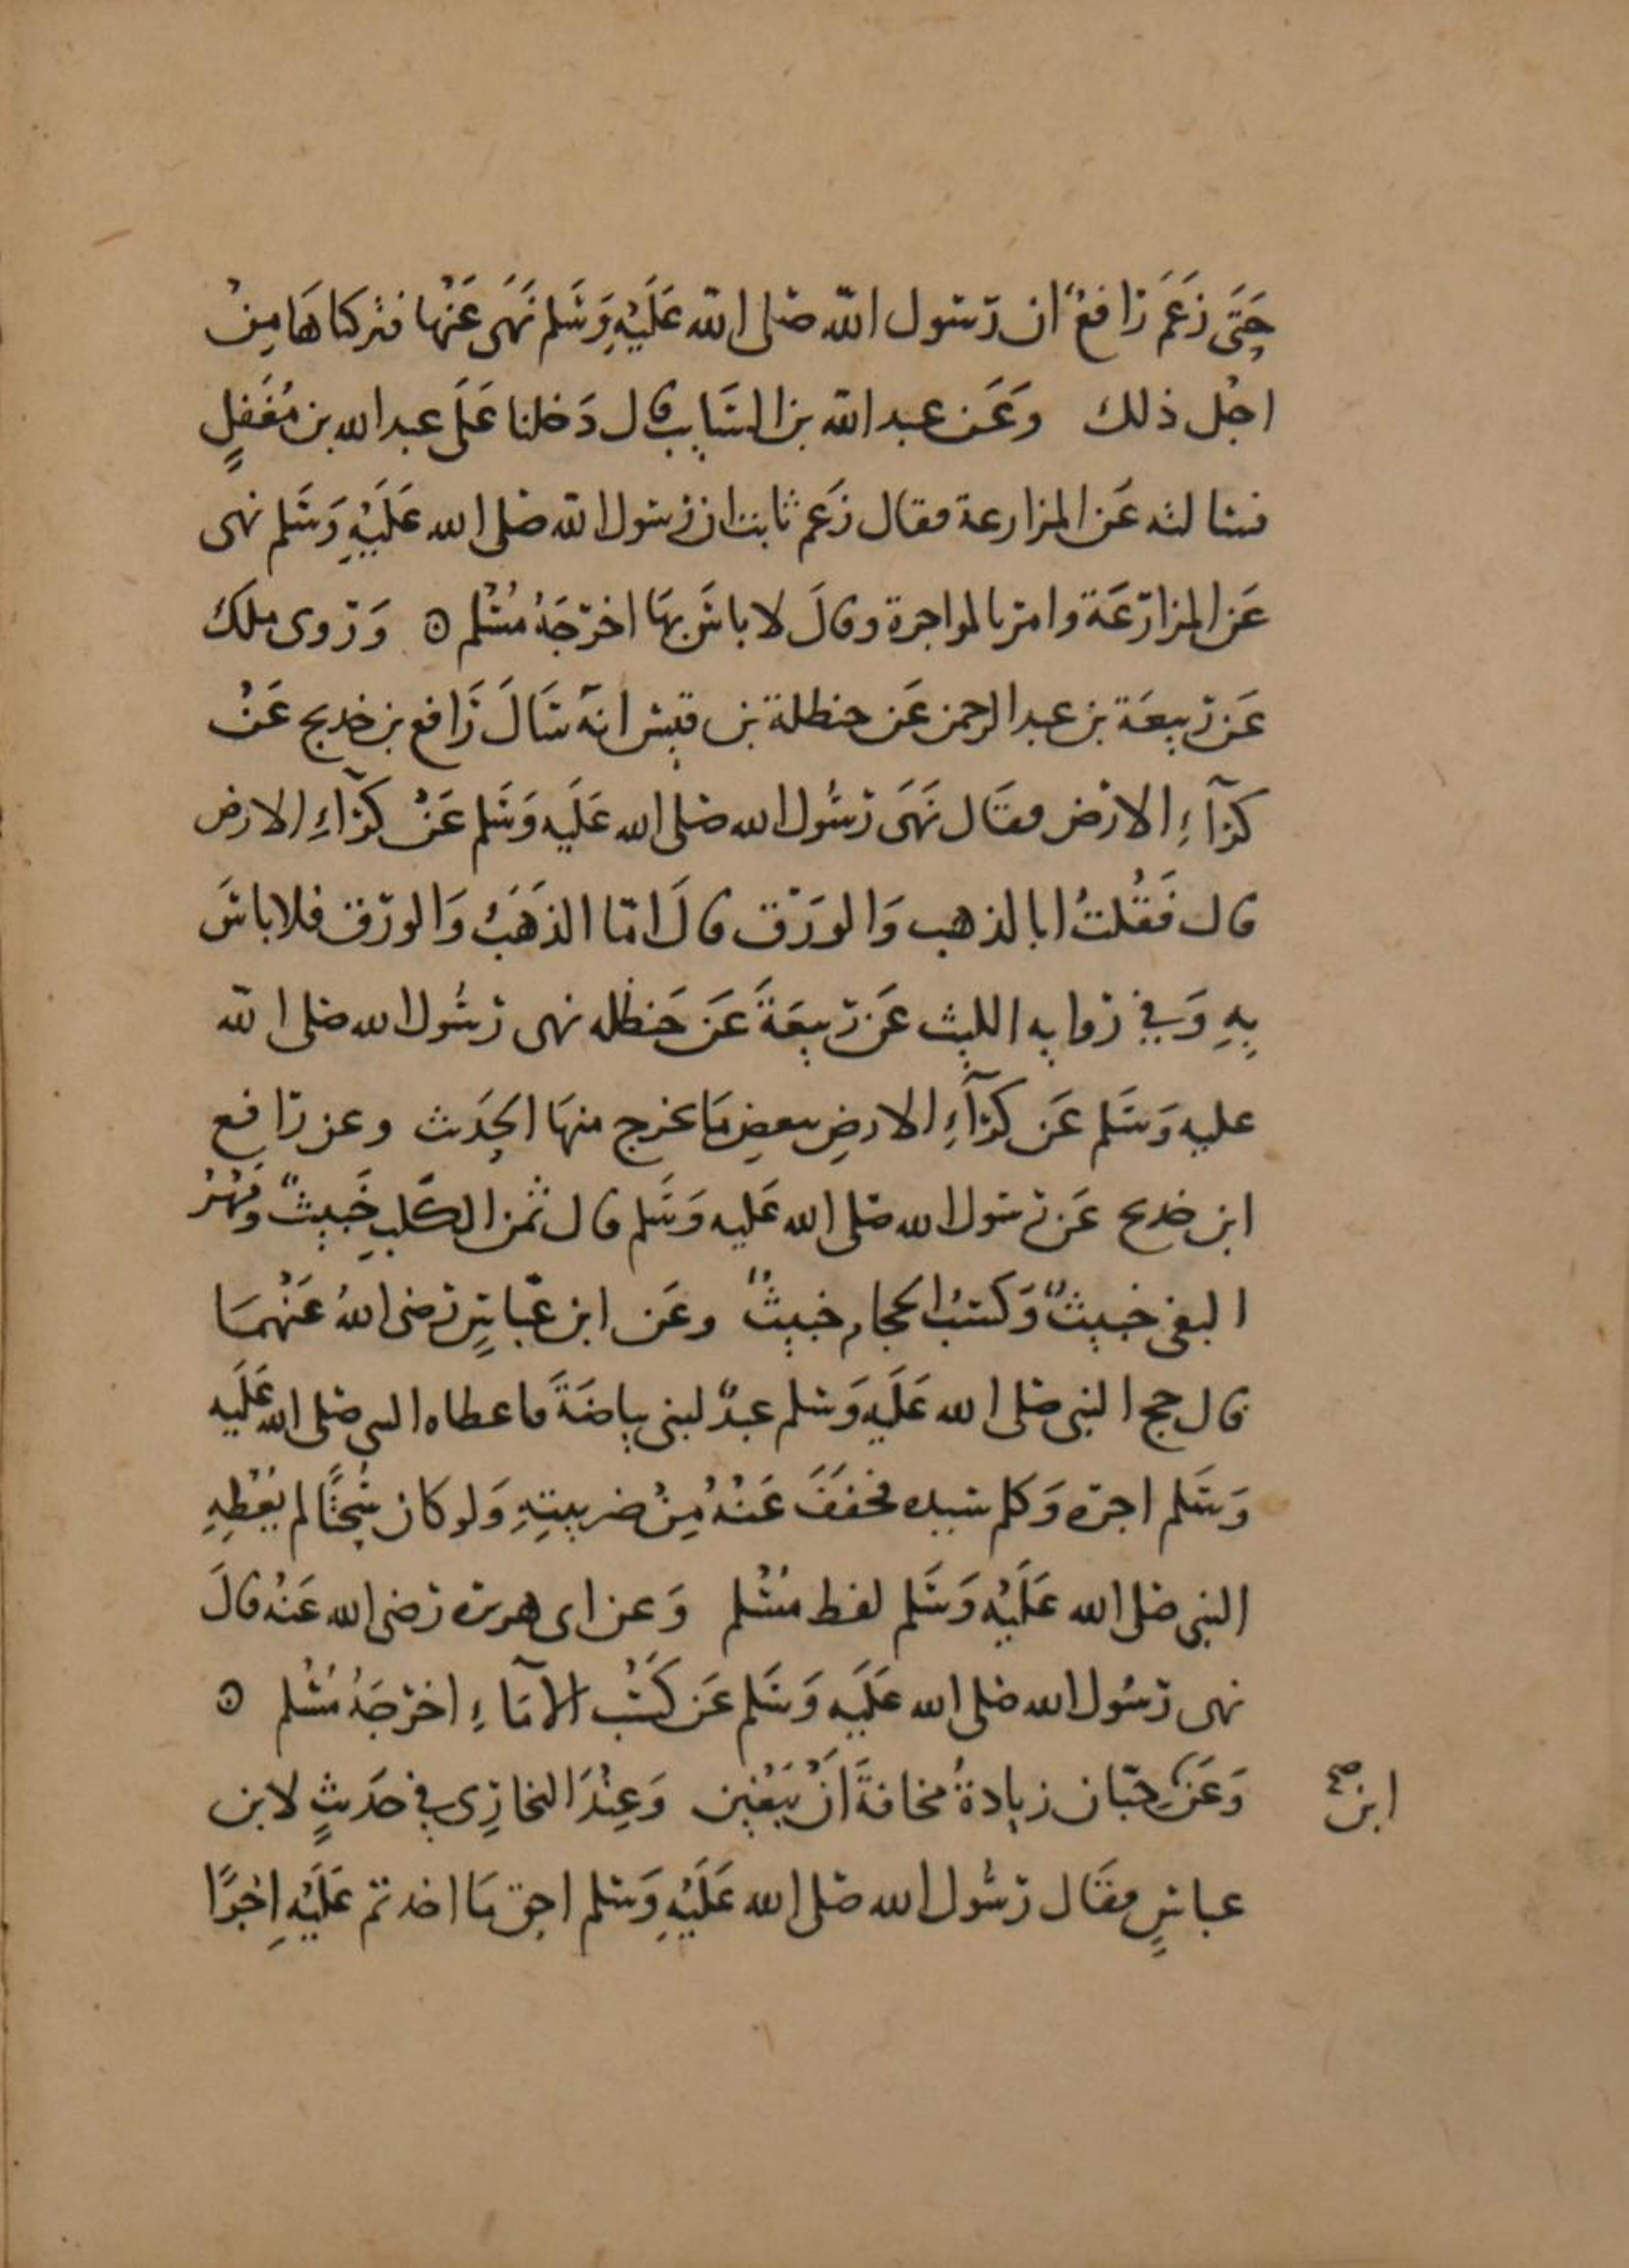 حَتَّى زَعَمَ رَافعٌ ان رسول الله صلى الله عَلَيْهِ وَسَلم نَهَى عَنْها فتركناهَا مِنْ
اجْل ذلك وَعَن عبد الله بن السَّايب قال دَخلنا عَلَى عبد الله بن مُغَفلٍ
فسالته عَن المزارعة فقال زَعم ثابت ان رسول الله صلى الله عَلَيْهِ وَسَلم نهى
عَن المزارَعَة وامر بالمواجرة وقالَ لا باسَ بهَا اخرَجَهُ مُسْلم وَروى ملك
عَن ربيعَة بن عبد الرحمن عَن حنظلة بن قيس انهَ سَالَ رَافع بن خديج عَنْ
كرَآءِ الارْض فقَال نَهَى رَسُول الله صلى الله عَلَيه وَسَلم عَنْ كرَآءِ الارض
قال فَقُلتُ ابالذهب وَالورَق قالَ امّا الذهَبُ وَالورق فلا باسَ
بِهِ وَفي روايه الليث عَن ربيعَةَ عَن حَنظله نهى رَسُول الله صلى الله
عليه وَسَلم عَن كرَآءِ الارضِ ببعضِ مَا يخرج منهَا الحدَيث وعن رافع
ابن خديج عَن رسول الله صلى الله عَليه وَسَلم قال ثمن الكَلبِ خَبيثٌ وَمَهْرُ
البغي خبيثٌ وَكسْبُ الحجام خبيثٌ وعَن ابن عبّاسٍ رَضى اللهُ عَنْهمَا
قال حجم النبى صلى الله عَلَيهِ وَسلم عبدٌ لبنى بياضَةَ فاعطاه النبي صلى الله عَلَيه
وَسَلم اجره وَكلم سيده فخففَ عَنْهُ مِنْ ضريبتِهِ وَلو كان سُحْتًا لم يُعْطِهِ
النبى صلى الله عَلَيْهِ وَسَلم لفظ مُسْلم وَعن ابى هريرة رَضى الله عَنهُ قالَ
نهى رَسُول الله صلى الله عَلَيه وَسَلم عَن كَسْب الامَاءِ اخرجَهُ مُسْلم
وَعَن حِبّان زيادةُ مخافةَ انْ يَبْغين وَعِنْدَ البخارِى فِي حَدَيثٍ لابن
ابن صح
عباسٍ فقَال رَسُول الله صلى الله عَلَيْهِ وَسَلم احق مَا اخذتم عَلَيْهِ اجْرًا